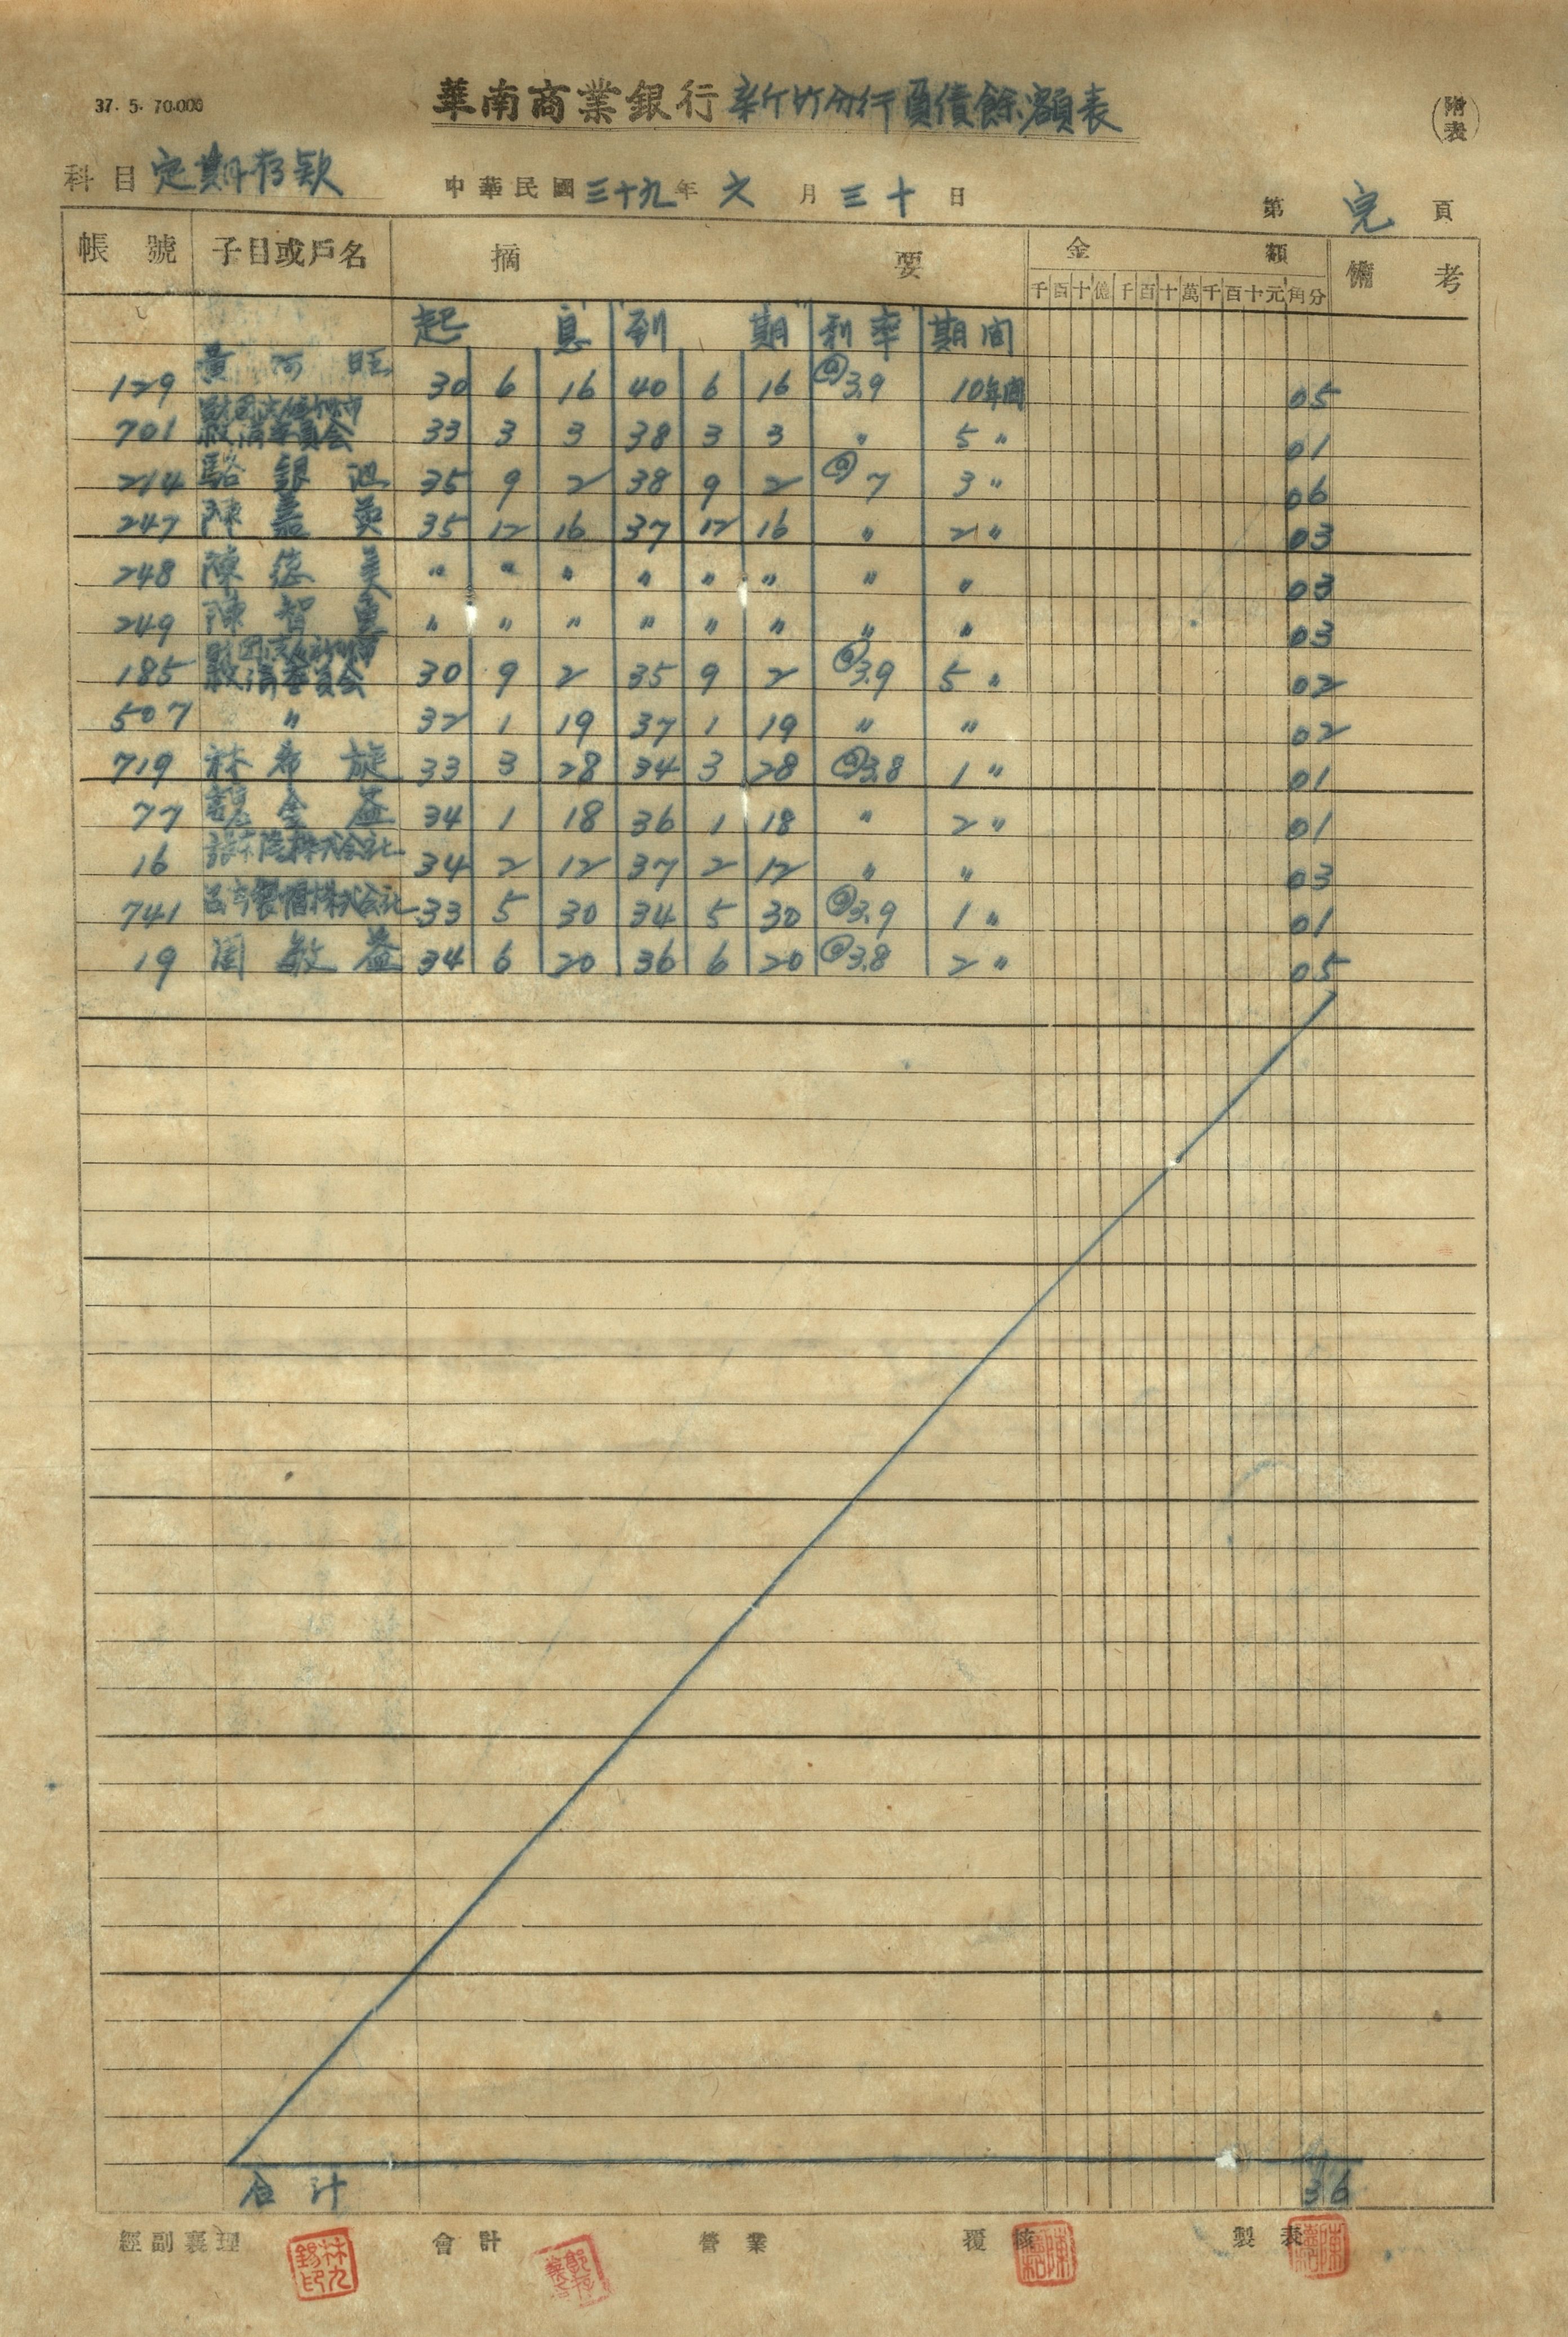 37. 5. 70.000
華南商業銀行 新竹分行負債餘額表
(附表)
科目 定期存款 中華民國三十九年六月三十日 第完頁
帳號 子目或戶名 摘要 金額 備考
千百十億千百十萬千百十元角分
起息 到期 利率 期間
129 黃阿旺 30 6 16 40 6 16 @3.9 10年間 05
701 委員会 33 3 3 38 3 3 〃 5〃 01
214 駱銀池 35 9 2 38 9 2 @7 3〃 06
247 陳嘉英 35 12 16 37 12 16 〃 2〃 03
248 陳德美 〃 〃 〃 〃 〃 〃 〃 〃 03
249 陳智惠 〃 〃 〃 〃 〃 〃 〃 〃 03
185 委員会 30 9 2 35 9 2 @3.9 5〃 02
507 〃 32 1 19 37 1 19 〃 〃 02
719 林希旋 33 3 28 34 3 28 @3.8 1〃 01
77 魏金益 34 1 18 36 1 18 〃 2〃 01
16 株式会社 34 2 12 37 2 12 〃 〃 03
741 製帽株式会社 33 5 30 34 5 30 @3.9 1〃 01
19 周敏益 34 6 20 36 6 20 @3.8 2〃 05
合計 36
經副襄理 會計 營業 覆核 製表
林九錫印